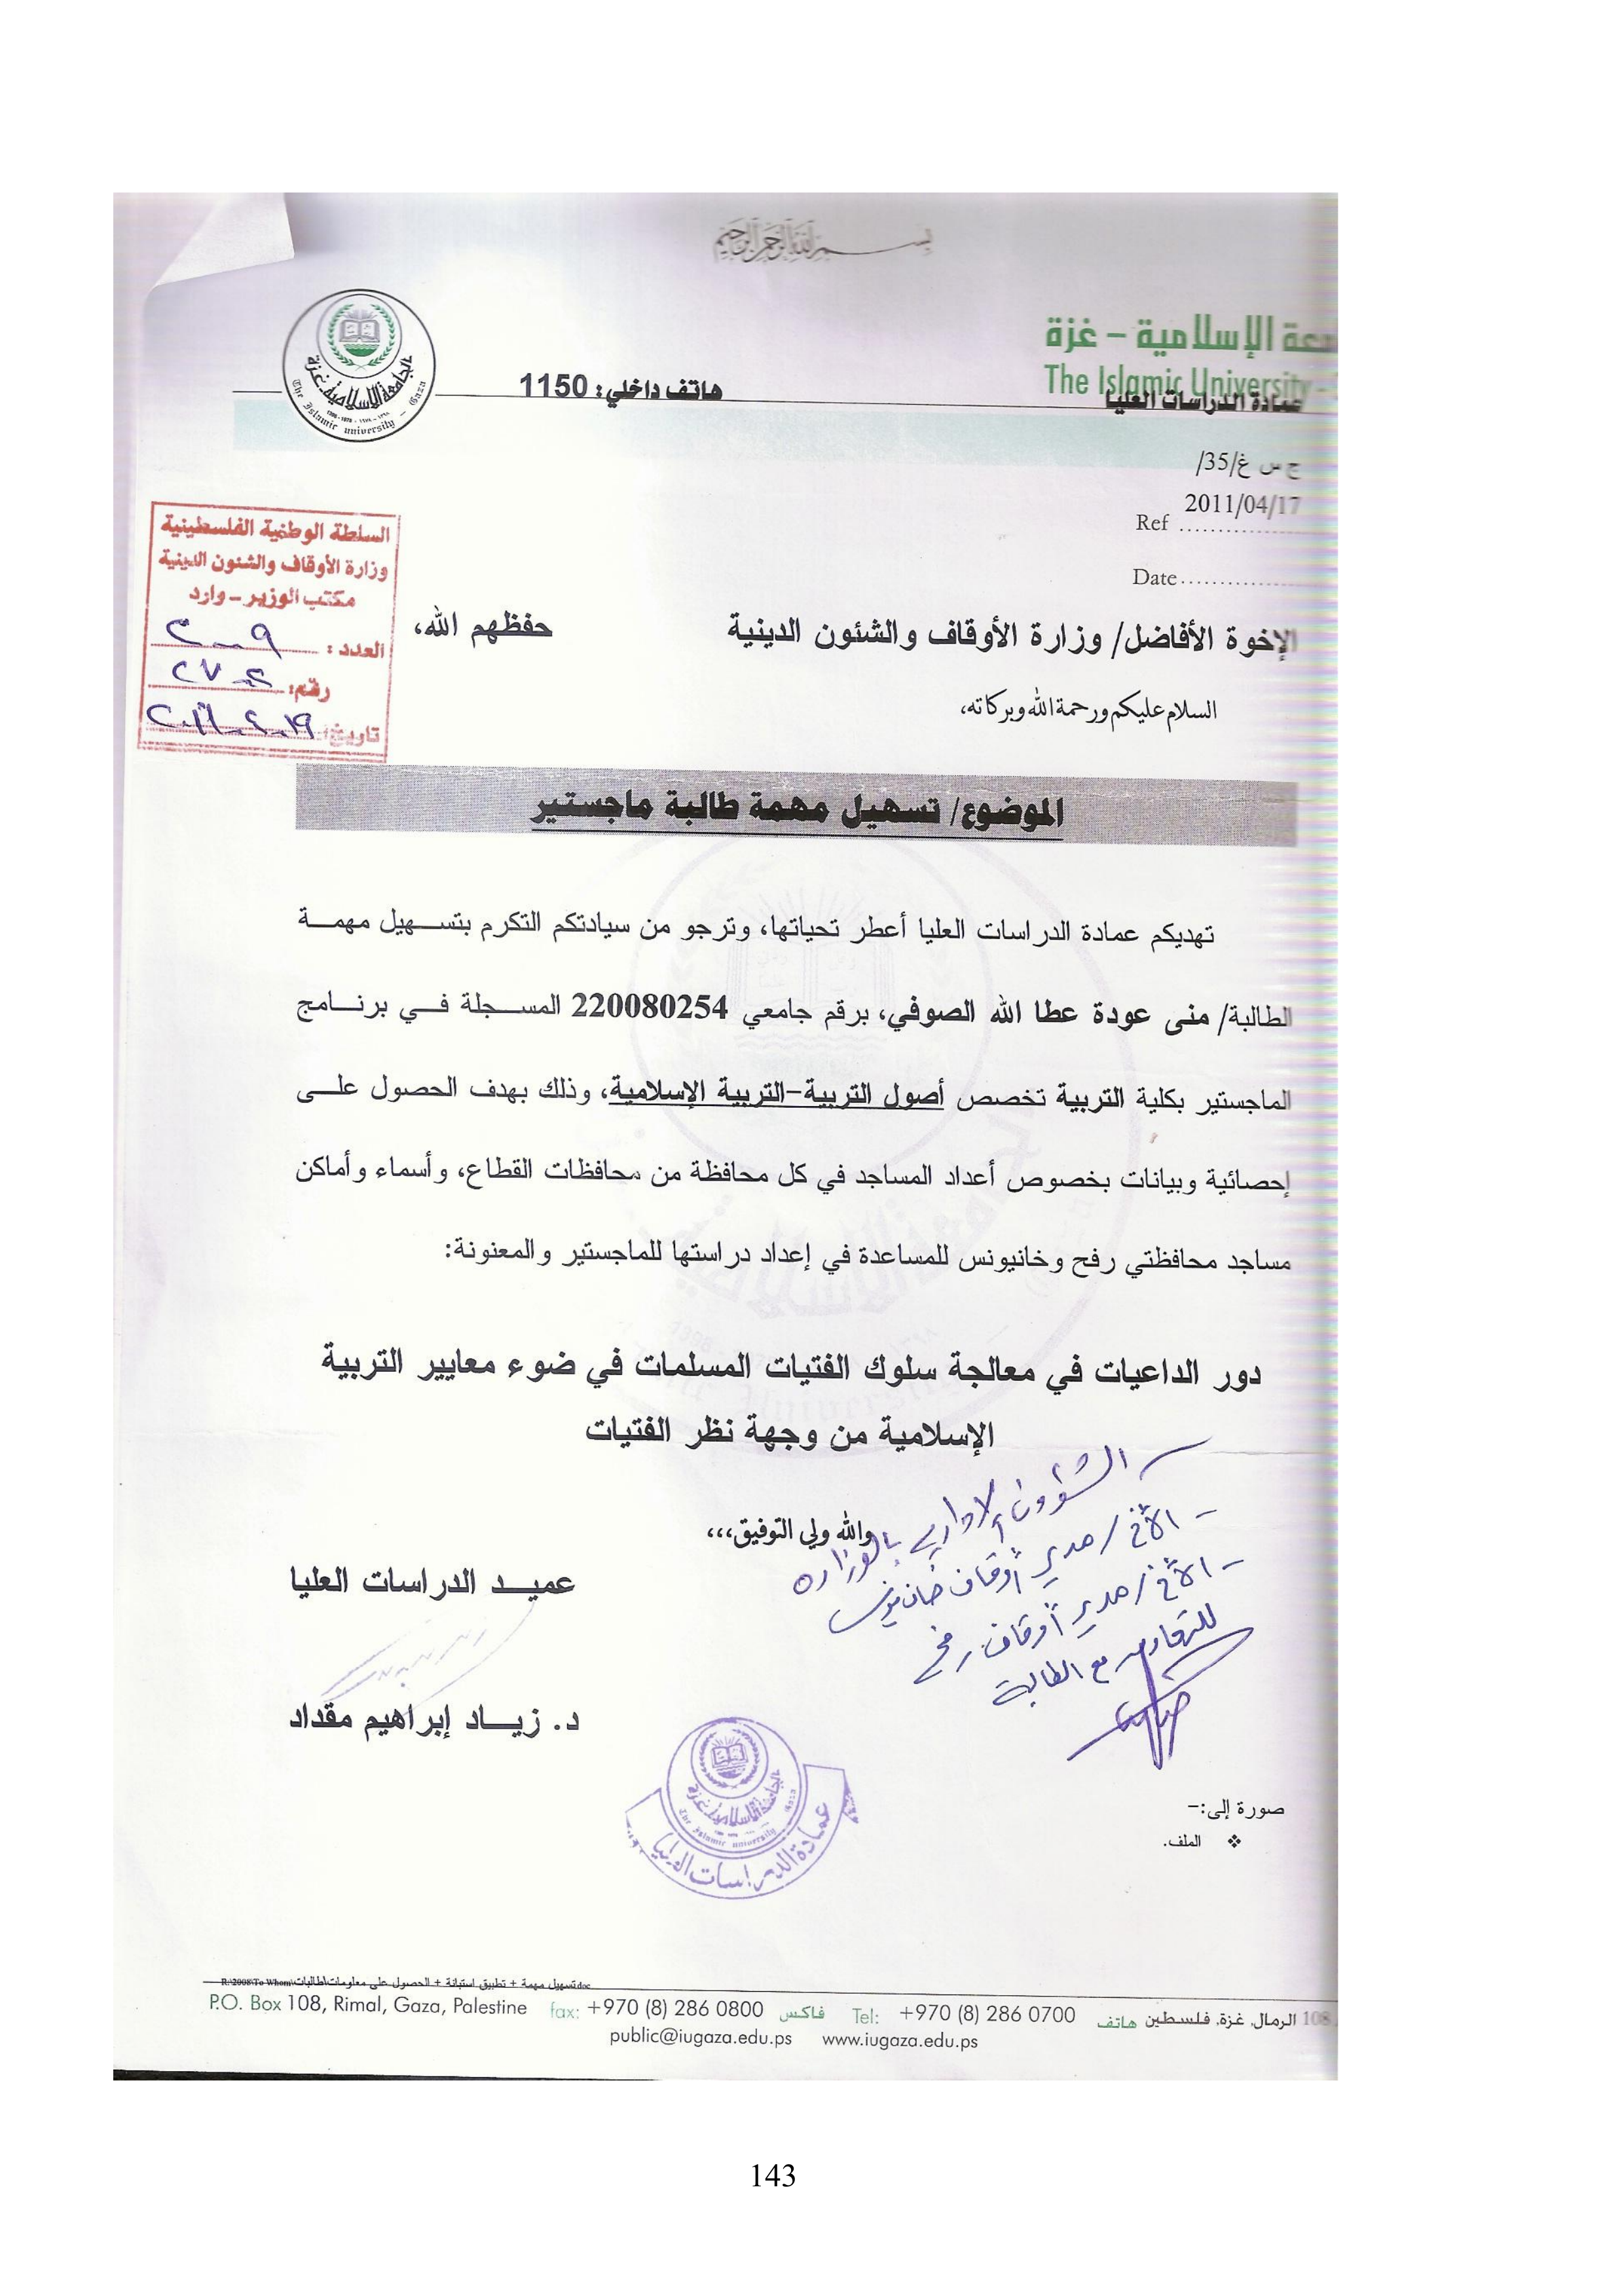 بسم الله الرحمن الرحيم
عة الإسلامية – غزة
The Islamic University -
عمادة الدراسات العليا
هاتف داخلي: 1150
الجامعة الإسلامية - غزة
The Islamic university - Gaza
ج س غ/35/
2011/04/17
Ref ................
Date................
السلطة الوطنية الفلسطينية
وزارة الأوقاف والشئون الدينية
مكتب الوزير – وارد
العدد:
رقم:
تاريخ:
الإخوة الأفاضل/ وزارة الأوقاف والشئون الدينية حفظهم الله،
السلام عليكم ورحمة الله وبركاته،
الموضوع/ تسهيل مهمة طالبة ماجستير
تهديكم عمادة الدراسات العليا أعطر تحياتها، وترجو من سيادتكم التكرم بتسهيل مهمة
الطالبة/ منى عودة عطا الله الصوفي، برقم جامعي 220080254 المسجلة في برنامج
الماجستير بكلية التربية تخصص أصول التربية-التربية الإسلامية، وذلك بهدف الحصول على
إحصائية وبيانات بخصوص أعداد المساجد في كل محافظة من محافظات القطاع، وأسماء وأماكن
مساجد محافظتي رفح وخانيونس للمساعدة في إعداد دراستها للماجستير والمعنونة:
دور الداعيات في معالجة سلوك الفتيات المسلمات في ضوء معايير التربية
الإسلامية من وجهة نظر الفتيات
والله ولي التوفيق،،،
- الشؤون الإدارية بالوزارة
- الأخ / مدير أوقاف خان يونس
- الأخ / مدير أوقاف رفح
للتعاون مع الطالبة
عميد الدراسات العليا
د. زياد إبراهيم مقداد
الجامعة الإسلامية - غزة
The Islamic university - Gaza
عمادة الدراسات العليا
صورة إلى:-
❖ الملف.
R:\2008\To Whom\تسهيل مهمة + تطبيق استبانة + الحصول على معلومات\طالبات.doc
P.O. Box 108, Rimal, Gaza, Palestine fax: +970 (8) 286 0800 فاكس Tel: +970 (8) 286 0700 هاتف 108 الرمال, غزة, فلسطين
public@iugaza.edu.ps www.iugaza.edu.ps
143